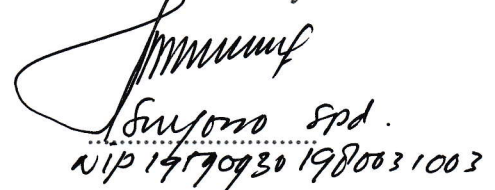 Suyono Spd.
NIP 19590930 1980031003